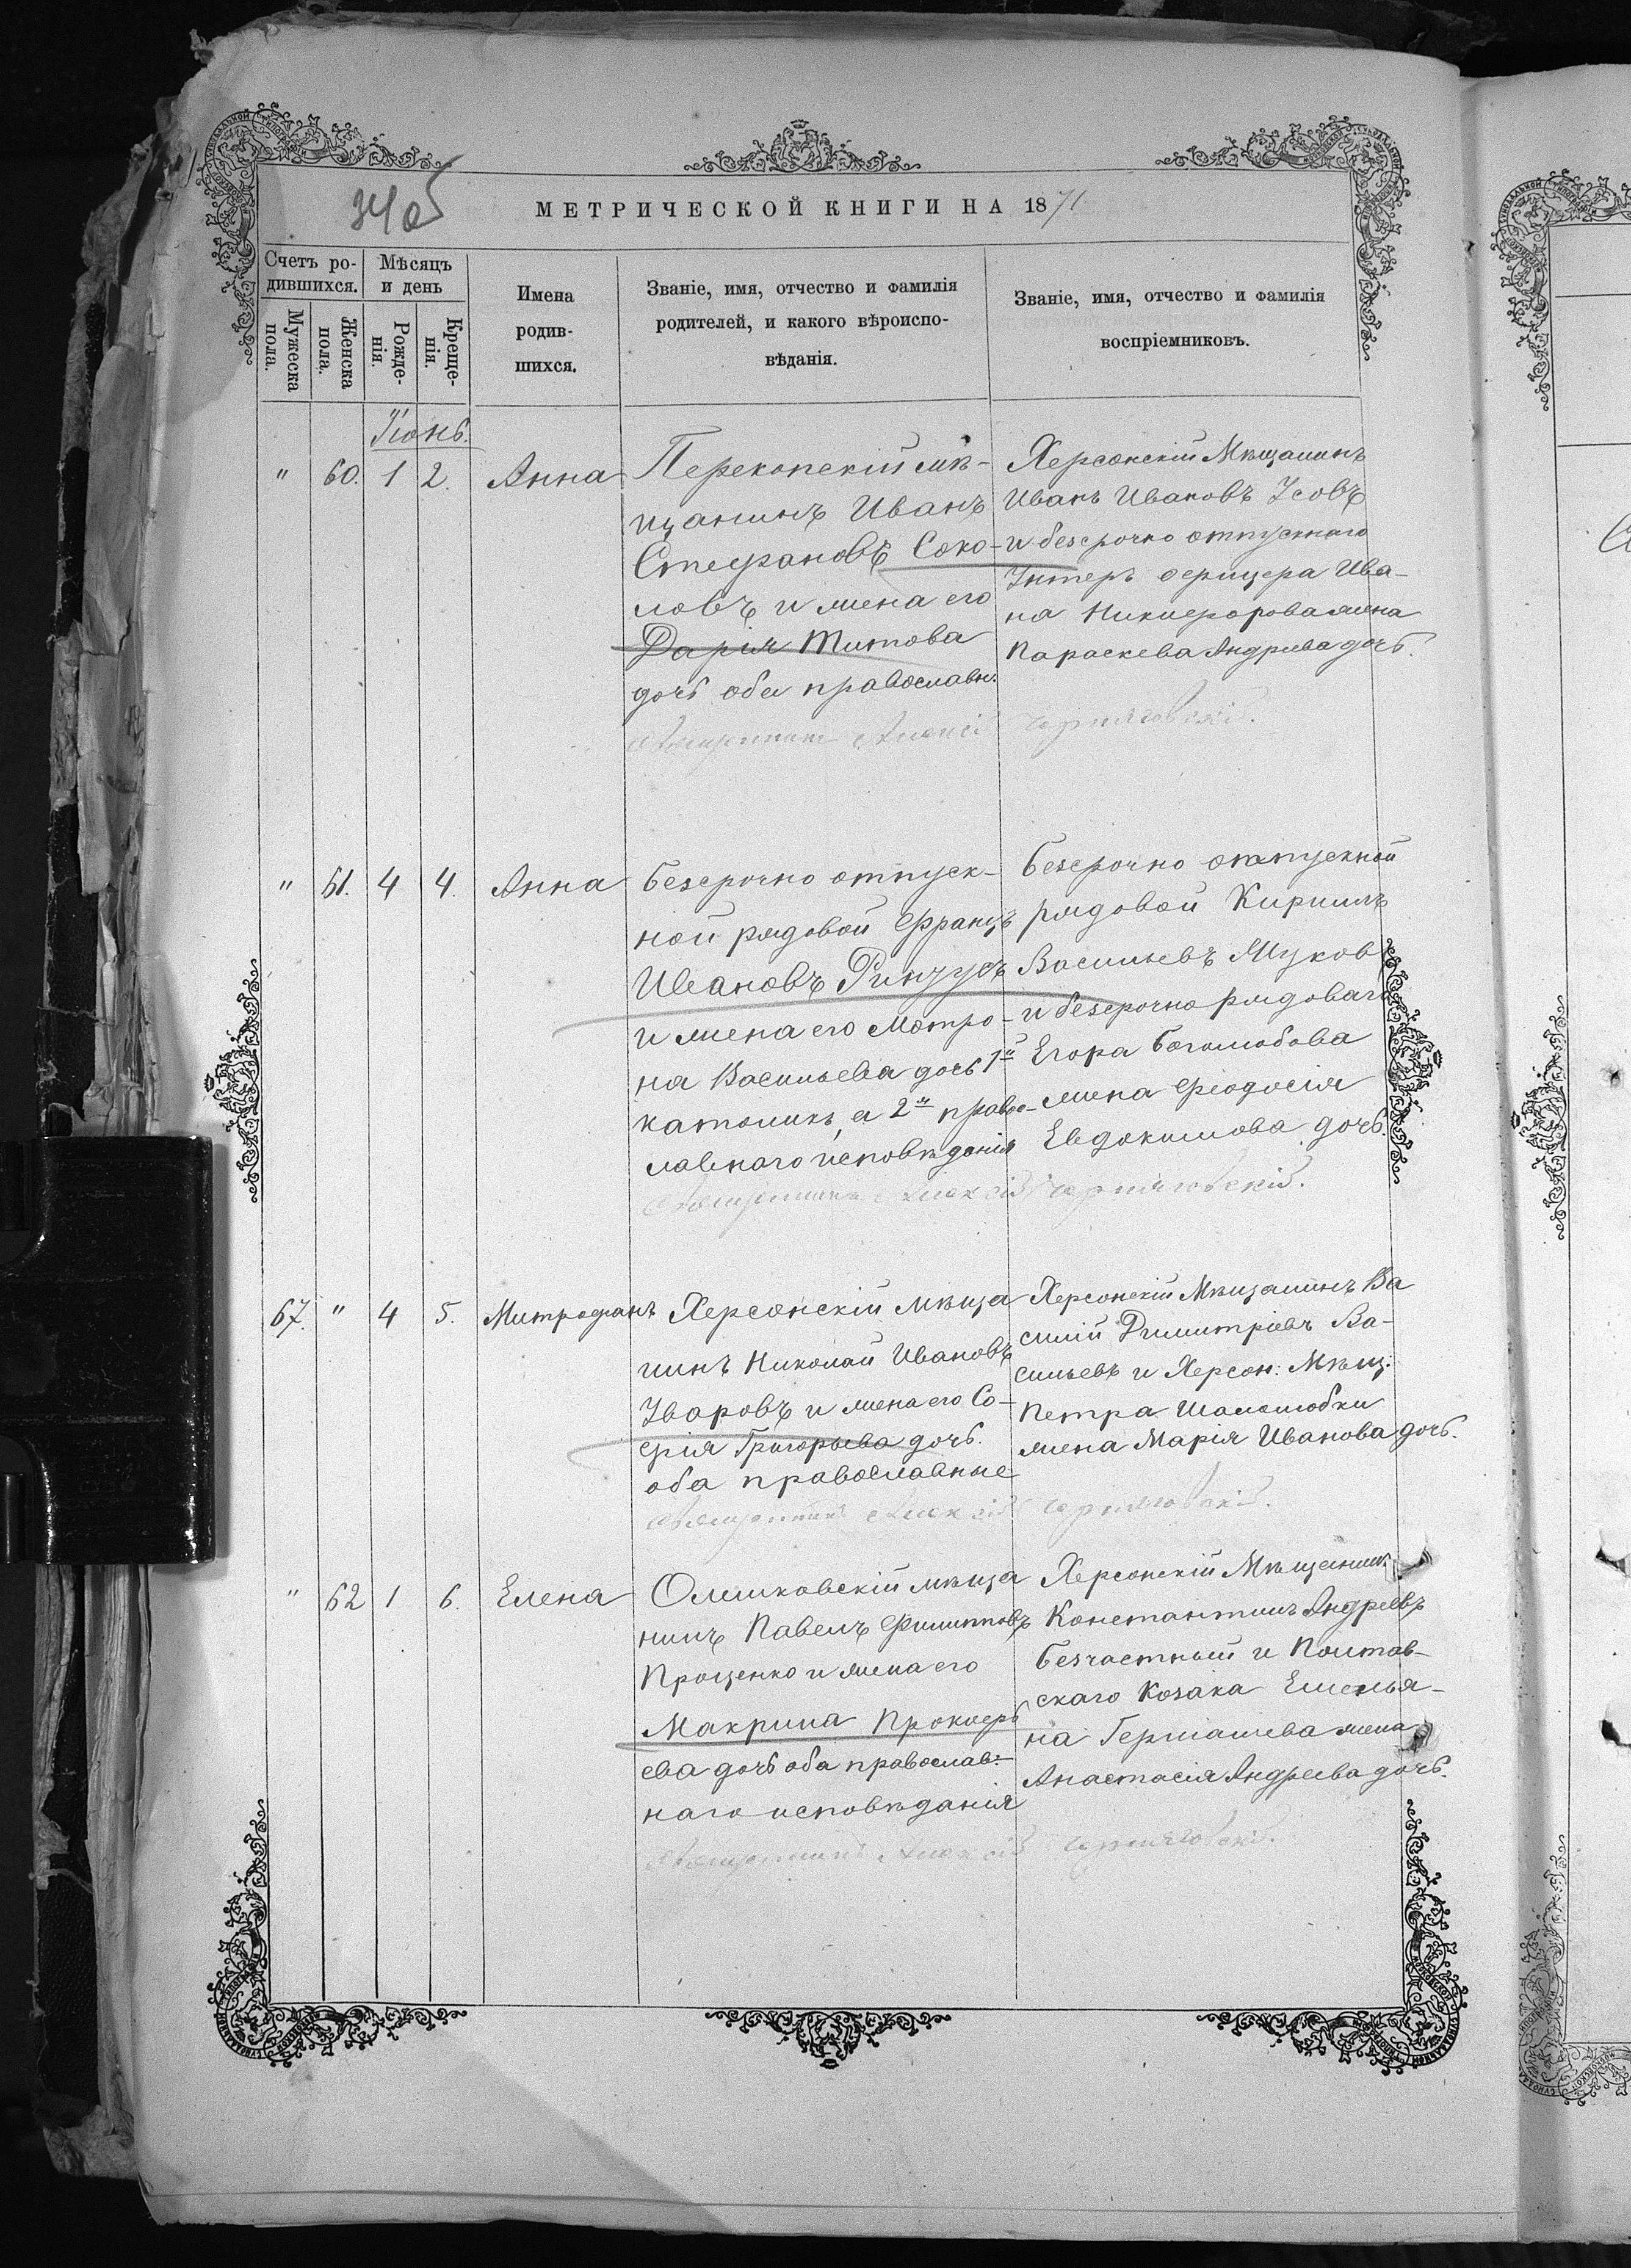 МЕТРИЧЕСКОЙ КНИГИ НА 1871
Счетъ ро-
дившихся.
Мѣсяцъ
и день
Мужеска
пола.
Женска
пола.
Рожде-
нія.
Креще-
нія.
Имена
родив-
шихся.
Званіе, имя, отчество и фамилія
родителей, и какого вѣроиспо-
вѣданія.
Званіе, имя, отчество и фамилія
воспріемниковъ.
Іюнь.
" 60. 1 2. Анна
Перекопскій мѣ-
щанинъ Иванъ
Стефановъ Соко-
ловъ и жена его
Дарія Титова
дочь оба православн.
Херсонскій Мѣщанинъ
Иванъ Ивановъ Усовъ
и безсрочно отпускнаго
Унтеръ офицера Ива-
на Никифорова жена
Параскева Андреева дочь.
Священникъ Алексій Черняговскій.
" 61. 4 4. Анна
безсрочно отпуск-
ной рядовой Францъ
Ивановъ
и жена его Мотро-
на Васильева дочь 1й
католикъ, а 2я правос-
лавнаго исповѣданія
безсрочно отпускной
рядовой Кирилъ
Васильевъ Жуковъ
и безсрочно рядоваго
Егора Боголюбова
жена Феодосія
Евдокимова дочь.
Священникъ Алексій Черняговскій.
67. " 4 5. Митрофанъ
Херсонскій мѣща
нинъ Николай Ивановъ
Уваровъ и жена его Со-
фія Григорьева дочь.
оба православные
Херсонскій Мѣщанинъ Ва
силій Димитріевъ Ва-
сильевъ и Херсон: Мѣщ:
Петра
жена Марія Иванова дочь.
Священникъ Алексій Черняговскій.
" 62 1 6. Елена
Олешковскій мѣща
нинъ Павелъ Филипповъ
Проценко и жена его
Макрина Прокофь
ева дочь оба православ-
наго исповѣданія
Херсонскій Мѣщанинъ
Константинъ Андреевъ
Безчастный и Полтав-
скаго Козака Емелья-
на жена
Анастасія Андреева дочь.
Священникъ Алексій Черняговскій.